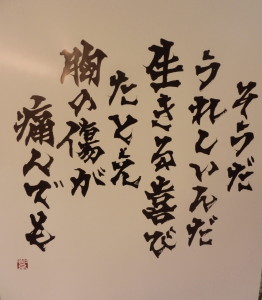 そうだ
うれしいんだ
生きる喜び
たとえ
胸の傷が
痛んでも